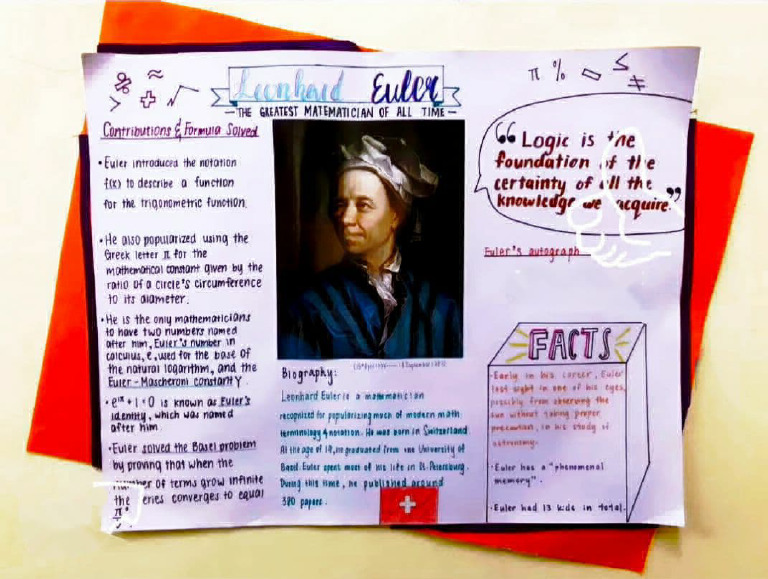 Leonhard Euler
— THE GREATEST MATEMATICIAN OF ALL TIME —
Contributions & Formula Solved
• Euler introduced the notation
f(x) to describe a function
for the trigonometric function.
• He also popularized using the
Greek letter π for the
mathematical constant given by the
ratio of a circle's circumference
to its diameter.
• He is the only mathematicians
to have two numbers named
after him, Euler's number in
calculus, e, used for the base of
the natural logarithm, and the
Euler - Mascheroni constant γ.
• is known as Euler's
identity, which was named
after him.
• Euler solved the Basel problem
by proving that when the
number of terms grow infinite
the series converges to equal
Biography:
Leonhard Euler is a mathematician
recognized for popularizing much of modern math
terminology & notation. He was born in Switzerland.
At the age of 19, he graduated from the University of
Basil. Euler spent most of his life in St. Petersburg.
During this time, he published around
380 papers.
π % ≤ ≠
“Logic is the
foundation of the
certainty of all the
knowledge we acquire.”
Euler's autograph
FACTS
• Early in his career, Euler
lost sight in one of his eyes,
possibly from observing the
sun without taking proper
precaution, in his study of
astronomy.
• Euler has a "phenomenal
memory".
• Euler had 13 kids in total.